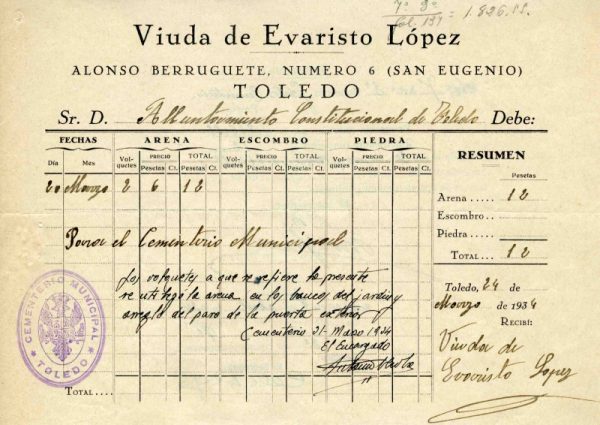 7º 9º
Col. 137 = 1.826.
Viuda de Evaristo López
ALONSO BERRUGUETE, NUMERO 6 (SAN EUGENIO)
TOLEDO
Sr. D. Alluntamiento Constitucional de Toledo Debe:
FECHAS ARENA ESCOMBRO PIEDRA RESUMEN
Día Mes Volquetes PRECIO TOTAL Volquetes PRECIO TOTAL Volquetes PRECIO TOTAL
Pesetas Ct. Pesetas Ct. Pesetas Ct. Pesetas Ct. Pesetas Ct. Pesetas Ct. Pesetas
20 Marzo 2 6 12
Arena ..... 12
Escombro..
Piedra.....
TOTAL... 12
Para el Cementerio Municipal
Los volquetes a que se refiere la presente
se utilizó la arena en los bancos del jardin y
arreglo del paso de la puerta exterior
Cementerio 21 Marzo 1934
El Encargado
CEMENTERIO MUNICIPAL
TOLEDO
Toledo, 24 de
Marzo de 1934
RECIBÍ:
Viuda de
Evaristo Lopez
TOTAL....